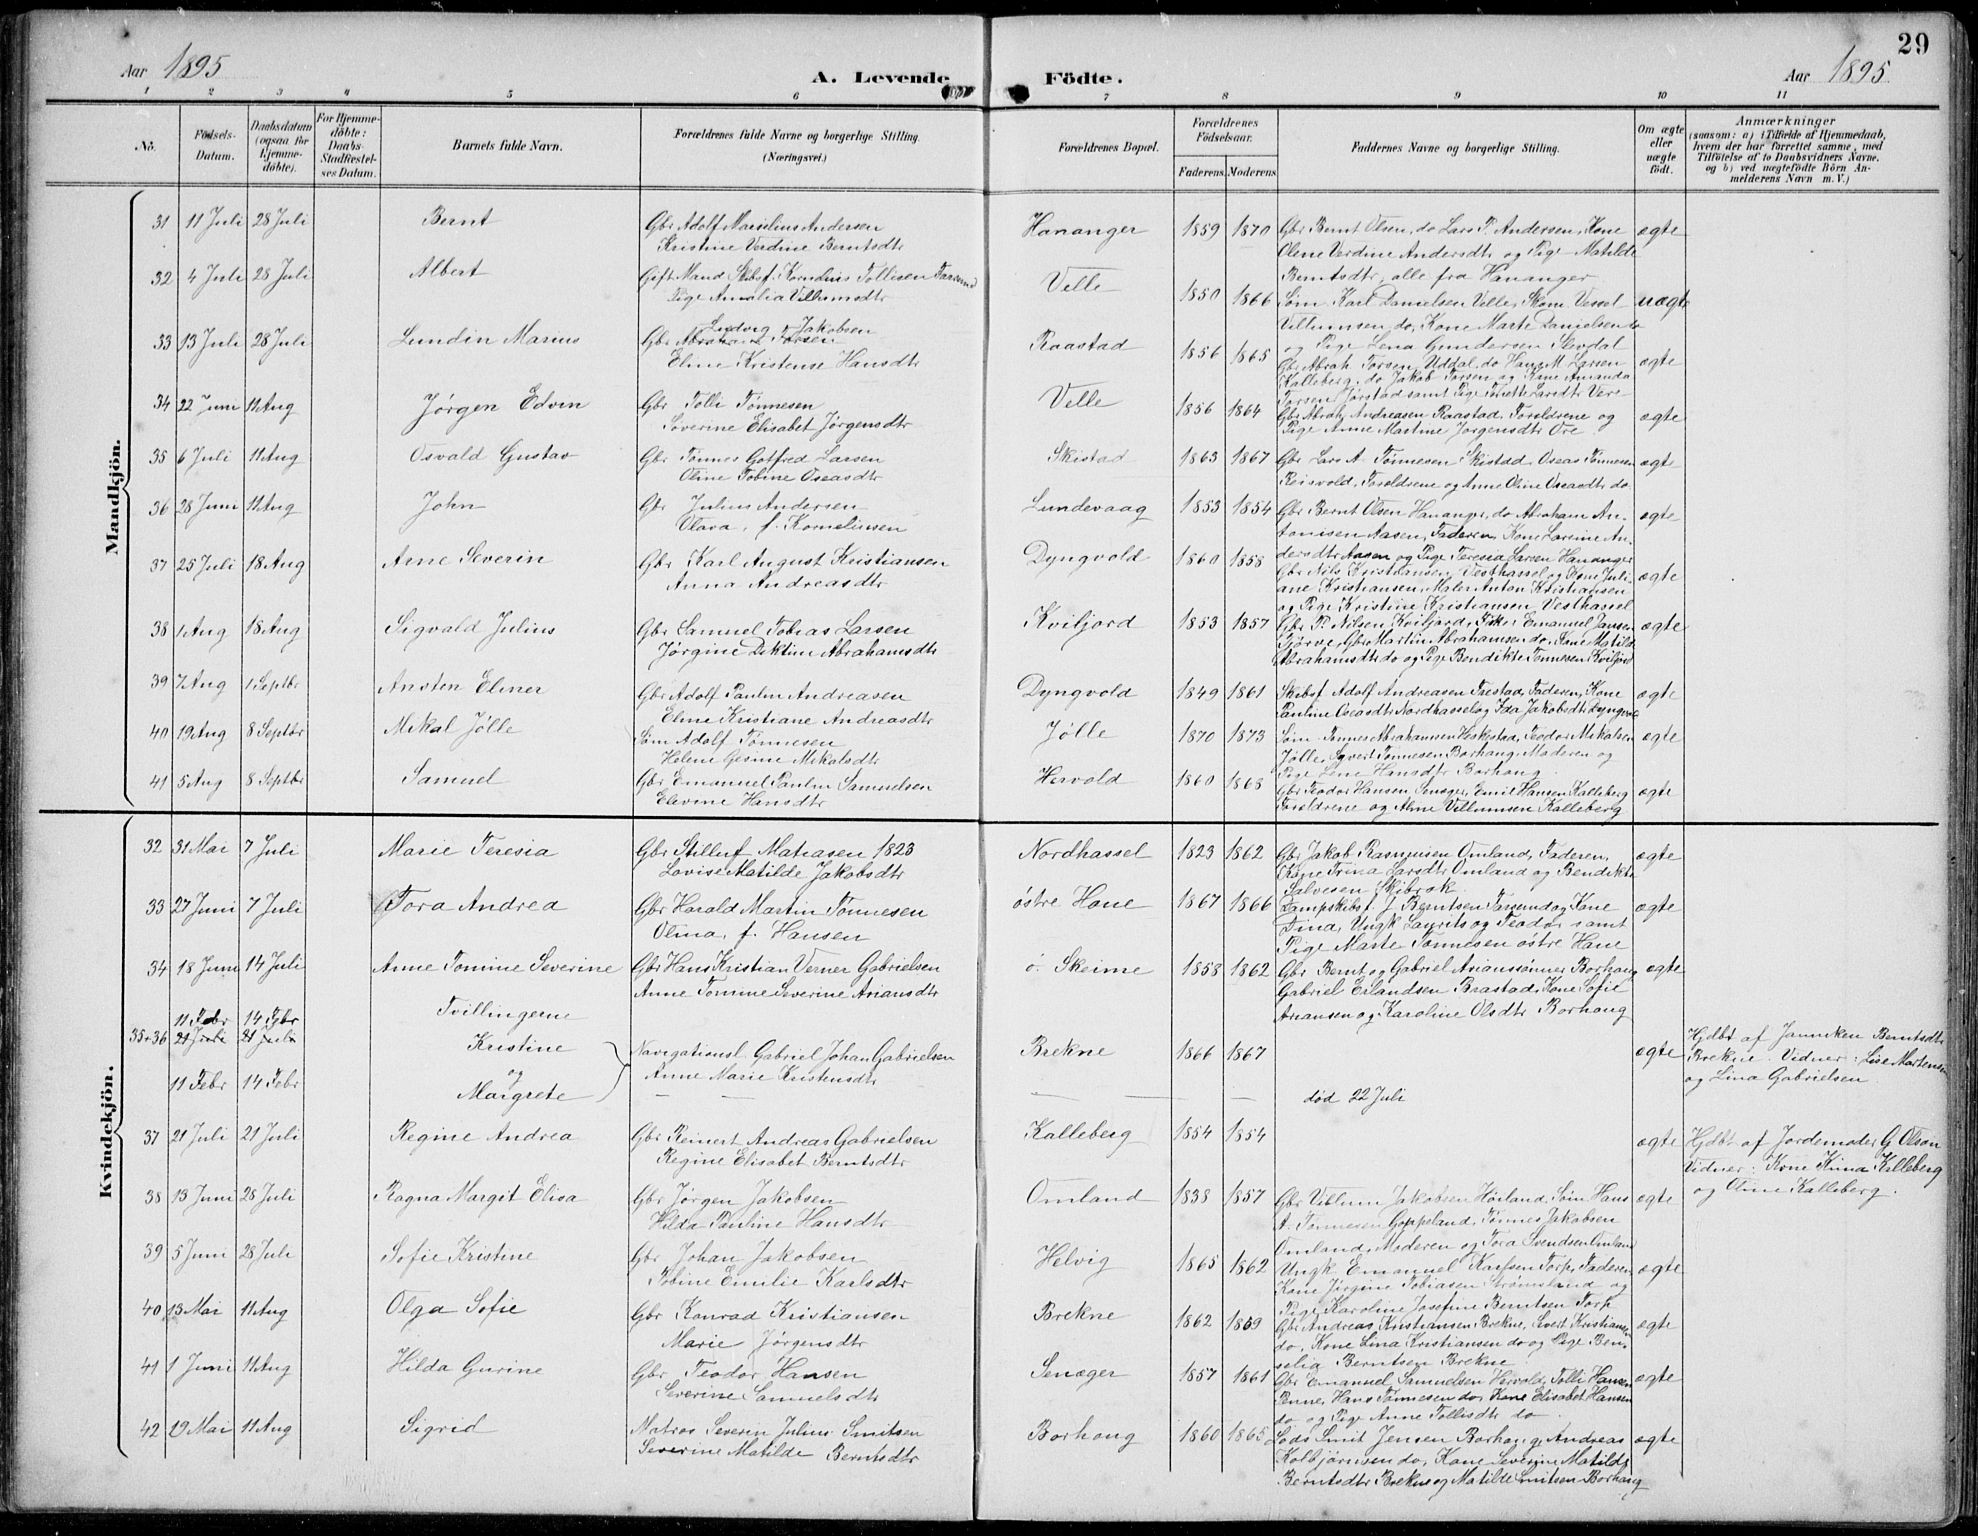 29
Aar 1895
A. Levende Födte.
Aar 1895.
1 2 3 4 5 6 7 8 9 10 11
No.
Födsels-Datum.
Daabsdatum (ogsaa for Hjemme-döbte).
For Hjemme-döbte: Daabs-Stadfæstel-ses Datum.
Barnets fulde Navn.
Forældrenes fulde Navne og borgerlige Stilling.
(Næringsvei.)
Forældrenes Bopæl.
Forældrenes Födselsaar.
Faderens. Moderens.
Faddernes Navne og borgerlige Stilling.
Om ægte eller uægte födt.
Anmærkninger
(saasom: a) i Tilfælde af Hjemmedaab,
hvem der har forrettet samme, med
Tilföielse af to Daabsvidners Navne,
og b) ved uægtefödte Börn An-
melderens Navn m. V.)
Mandkjön.
31 11 Juli 28 Juli Bernt Gbr Adolf Marselius Andersen Hananger 1859 1870 Gbr Bernt Olsen, do Lars P. Andersen, Kone ægte
Kristine Verdine Berntsdtr Olene Verdine Andersdtr og Pige Matilde
Berntsdtr, alle fra Hananger
32 4 Juli 28 Juli Albert Gift Mand Skibsf. Kornelius Tollisen Farsund Velle 1850 1866 Søm. Karl Danielsen Velle, Skom Vessel uægte
Pige Amalia Villumsdtr Villumsen do, Kone Marte Danielsen do
og Pige Lena Gundersen Slevdal
33 13 Juli 28 Juli Lundin Marius Gbr Ludvig Jakobsen Raastad 1856 1865 Gbr Abrah Torsen Uddal, do Hans M Larsen ægte
Abraham Torsen
Eline Kristense Hansdtr Kalleberg, do Jakob Torsen og Kone Amanda
Torsen Jørstad samt Pige Larsdtr Vere
34 22 Juni 11 Aug Jørgen Edvin Gbr Tolli Tønnesen Velle 1856 1864 Gbr Abrah Andreasen Raastad, Foreldrene og ægte
Severine Elisabet Jørgensdtr Pige Anne Martine Jørgensdtr Ore
35 6 Juli 11 Aug Osvald Gustav Gbr Tønnes Gotfred Larsen Skistad 1863 1867 Gbr Lars A. Tønnesen Skistad, Oseas Tønnesen ægte
Oline Tobine Oseasdtr Reisvold, Foreldrene og Anne Oline Oseasdtr do
36 28 Juni 11 Aug John Gbr Julius Andersen Lundevaag 1853 1854 Gbr Bernt Olsen Hananger, do Abraham An- ægte
Olava, f. Kornelius­sen tonisen Aasen, Faderen, Kone Larsine An-
dersdtr Aasen og Pige Teresia Larsen Hananger
37 25 Juli 18 Aug Arne Severin Gbr Karl August Kristiansen Dyngvold 1860 1858 Gbr Nils Kristiansen Vesthassel og Kone Juli- ægte
Anna Andreasdtr ane Kristiansen, Maler Anton Kristiansen
og Pige Kristine Kristiansen Vesthassel
38 1 Aug 18 Aug Sigvald Julius Gbr Samuel Tobias Larsen Kviljord 1853 1857 Gbr P. Nilsen Kviljord, Emanuel Jansen ægte
Jørgine Abrahamsdtr Tjørve, Gbr Martin Abrahamsen do, Kone Matild
Abrahamsdtr do og Pige Bendikte Tønnesen Kviljord
39 7 Aug 1 Septbr Ansten Elmer Gbr Adolf Paulin Andreasen Dyngvold 1849 1861 Skibsf Adolf Andreasen Frestad, Faderen, Kone ægte
Eline Kristiane Andreasdtr Pauline Oseasdtr Nordhassel og Ida Jakobsdtr Dyngvold
40 19 Aug 8 Septbr Mikal Jølle Søm Adolf Tønnesen Jølle 1870 1873 Søm. Tønnes Abrahamsen Heskestad, Teodor Mikalsen ægte
Helene Gesine Mikalsdtr Jølle, Syvert Tønnesen Borhaug, Moderen og
Pige Lene Hansdtr Borhaug
41 5 Aug 8 Septbr Samuel Gbr Emanuel Paulin Samuelsen Hervold 1860 1868 Gbr Teodor Hansen Senæger, Emil Hansen Kalleberg ægte
Elevine Hansdtr Foreldrene og Aline Villumsen Kalleberg
Kvindekjön.
32 31 Mai 7 Juli Marie Teresia Gbr Stilluf Matiasen 1823 Nordhassel 1823 1862 Gbr Jakob Rasmussen Omland, Faderen, ægte
Lovise Matilde Jakobsdtr Kone Trina Larsdtr Omland og Bendikte
Salvesen Skibrok
33 27 Juni 7 Juli Tora Andrea Gbr Harald Martin Tønnesen østre Hane 1867 1866 Dampskibsf. J. Berntsen Farsund og Kone ægte
Olina, f. Hansen Tina, Ungk Laurits og Teodor samt
Pige Marte Tønnesen østre Hane
34 18 Juni 14 Juli Anne Tomine Severine Gbr Hans Kristian Verner Gabrielsen ø. Skeime 1858 1862 Gbr Bernt og Gabriel Arianssønner Borhaug ægte
Anne Tomine Severine Ariansdtr Gabriel Erlandsen Brastad, Kone Sofie
Ariansen og Karoline Olsdtr Borhaug
Tvillingerne
35+36 11 Febr 14 Febr
21 Juli 21 Juli Kristine Navigationsl. Gabriel Johan Gabrielsen Brekne 1866 1867 ægte Hjdbt af Janniken Berntsdtr
og Anne Marie Kristensdtr Brekne. Vidner: Lise Martensen
11 Febr 14 Febr Margrete — — — — — død 22 Juli og Lina Gabrielsen.
37 21 Juli 21 Juli Regine Andrea Gbr Reinert Andreas Gabrielsen Kalleberg 1854 1854 ægte Hjdbt af Jordemoder G Olsen
Regine Elisabet Berntsdtr Vidner: Kone Kalleberg
og Oline Kalleberg.
38 13 Juni 28 Juli Ragna Margit Elisa Gbr Jørgen Jakobsen Omland 1838 1857 Gbr Villum Jakobsen Hørland, Søm Hans ægte
Hilda Pauline Hansdtr A. Tønnesen Goppeland, Tønnes Jakobsen
Omland, Moderen og Tora Svendsen Omland
39 5 Juni 28 Juli Sofie Kristine Gbr Johan Jakobsen Helvig 1865 1862 Ungk Emanuel Karlsen Torp, Faderen ægte
Tobine Emilie Karlsdtr Kone Jørgine Tobiasen Strømsland og
Pige Karoline Josefine Berntsen Torp
40 13 Mai 11 Aug Olga Sofie Gbr Konrad Kristiansen Brekne 1862 1869 Gbr Andreas Kristiansen Brekne, Sivert Kristiansen ægte
Marie Jørgensdtr do, Kone Lina Kristiansen do og Pige Ben-
selia Berntsen Brekne
41 1 Juni 11 Aug Hilda Gurine Gbr Teodor Hansen Senæger 1857 1861 Gbr Emanuel Samuelsen Hervold, Tolli Hansen ægte
Severine Samuelsdtr Penne, Hans Tønnesen do, Kone Elisabet Hansen
do og Pige Anne Tollisdtr do
42 19 Mai 11 Aug Sigrid Matros Severin Julius Smitsen Borhaug 1860 1865 Lods Smit Jensen Borhaug, Andreas ægte
Severine Matilde Berntsdtr Kolbjørnsen do, Kone Severine Matilde
Berntsdtr Brekne og Matilde Smitsen Borhaug